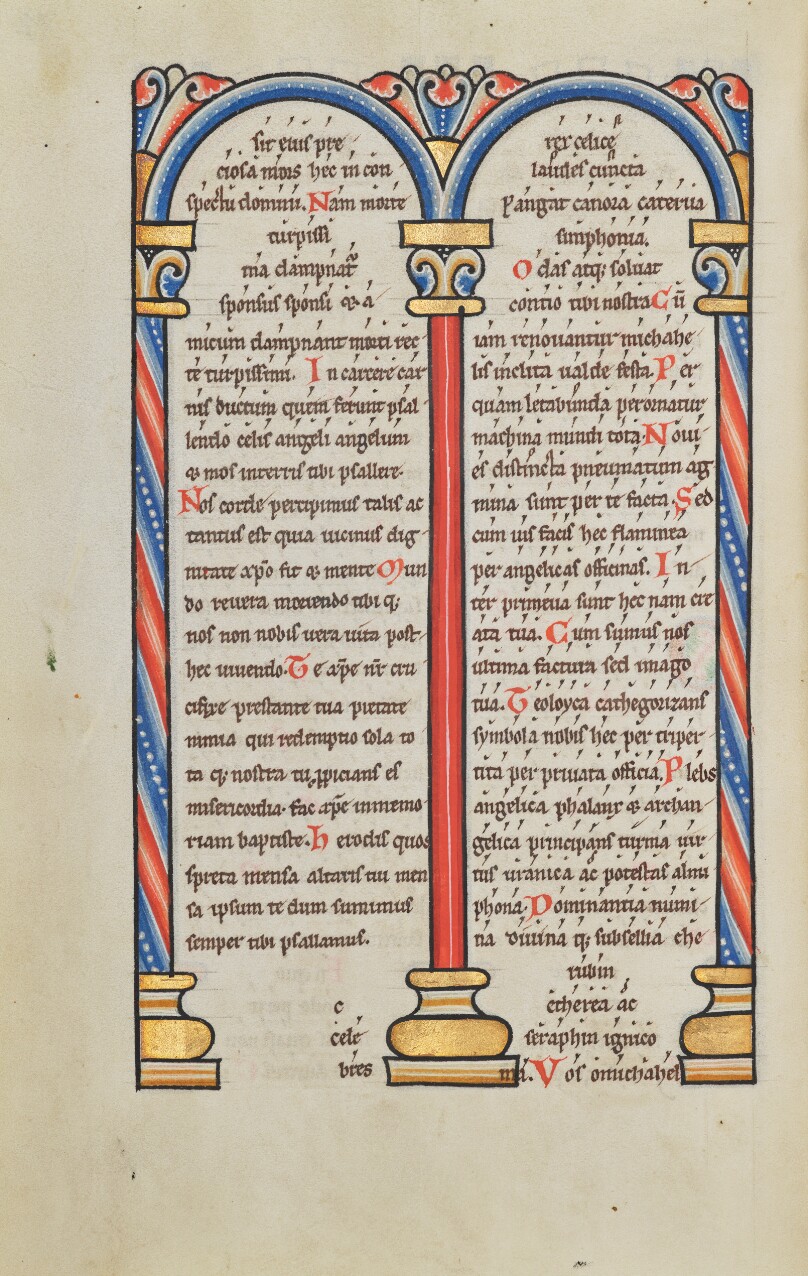 sit eius pre
ciosa mors hec in con
spectu domini. Nam morte
turpissi
ma dampnat᷑
sponsus sponsi & a
micum dampnant morti rec
te turpissimi. In carcere car
nis ductum quem ferunt psal
lendo celis angeli angelum
& nos interris tibi psallere.
Nos corde percipimus talis ac
tantus est quia uicinus dig
nitate xp̄o fit & mente Mun
do reuera moriendo tibi q;
nos non nobis uera uita post
hec uiuendo. Te xp̄e nr̄ cru
cifixe prestante tua pietate
nimia qui redemptio sola to
ta q; nostra
misericordia. fac xp̄e inmemo
riam baptiste. herodis quos
spreta mensa altaris tui men
sa ipsum te dum sumimus
semper tibi psallamus.
c
cele
bres
rex celice
laudes cuncta
Pangat canora caterua
simphonia.
Odas atq; soluat
contio tibi nostra Cū
iam renouantur michahe
lis inclita ualde festa. Per
quam letabunda perornatur
machina mundi tota. Noui
es distincta pneumatum ag
mina sunt per te facta. Sed
cum uis facis hec flammea
per angelicas officinas. In
ter primeua sunt hec nam cre
ata tua. Cum sumus nos
ultima factura sed imago
tua. Teoloyca cathegorizans
symbola nobis hec per triper
tita per priuata officia. Plebs
angelica phalanx & archan
gelica principans turma uir
tus uranica ac potestas almi
phona. Dominantia numi
na diuina q; subsellia che
rubin
etherea ac
seraphin ignico
ma. Vos omichahel